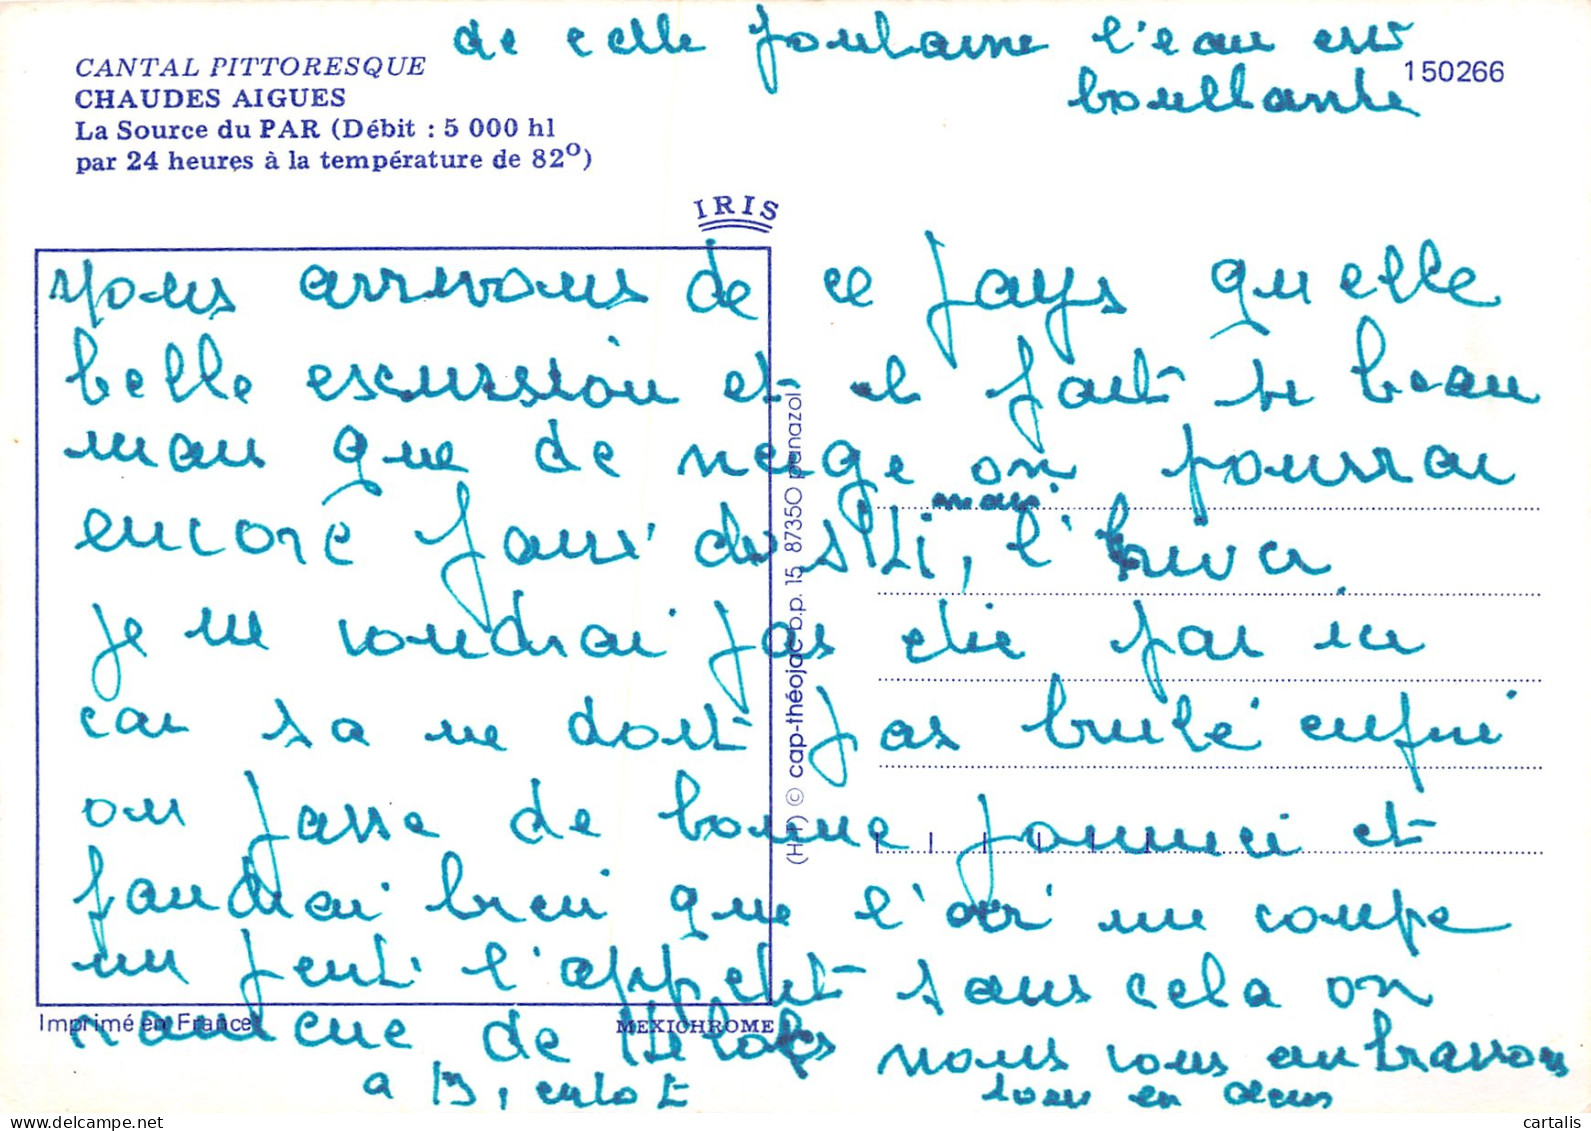 de celle fontaine l'eau est
bouillante
CANTAL PITTORESQUE
150266
CHAUDES AIGUES
La Source du PAR (Débit : 5 000 hl
par 24 heures à la température de 82º)
IRIS
Nous arrivons de ce pays quelle
belle escursion et il fait si beau
mais que de neige on pourrai
encore faire du ski, l'hiver
mais
je ne voudrai pas etre par ici
car sa ne doit pas brulé enfin
on passe de bonne journeé et
faudrai bien que l'air me coupe
un peut l'appetit sans cela on
manque de
nous vous embrassons
a
tous en deux
(H-T) © cap-théojac b.p. 15 87350 panazol
Imprimé en France
MEXICHROME
cartalis